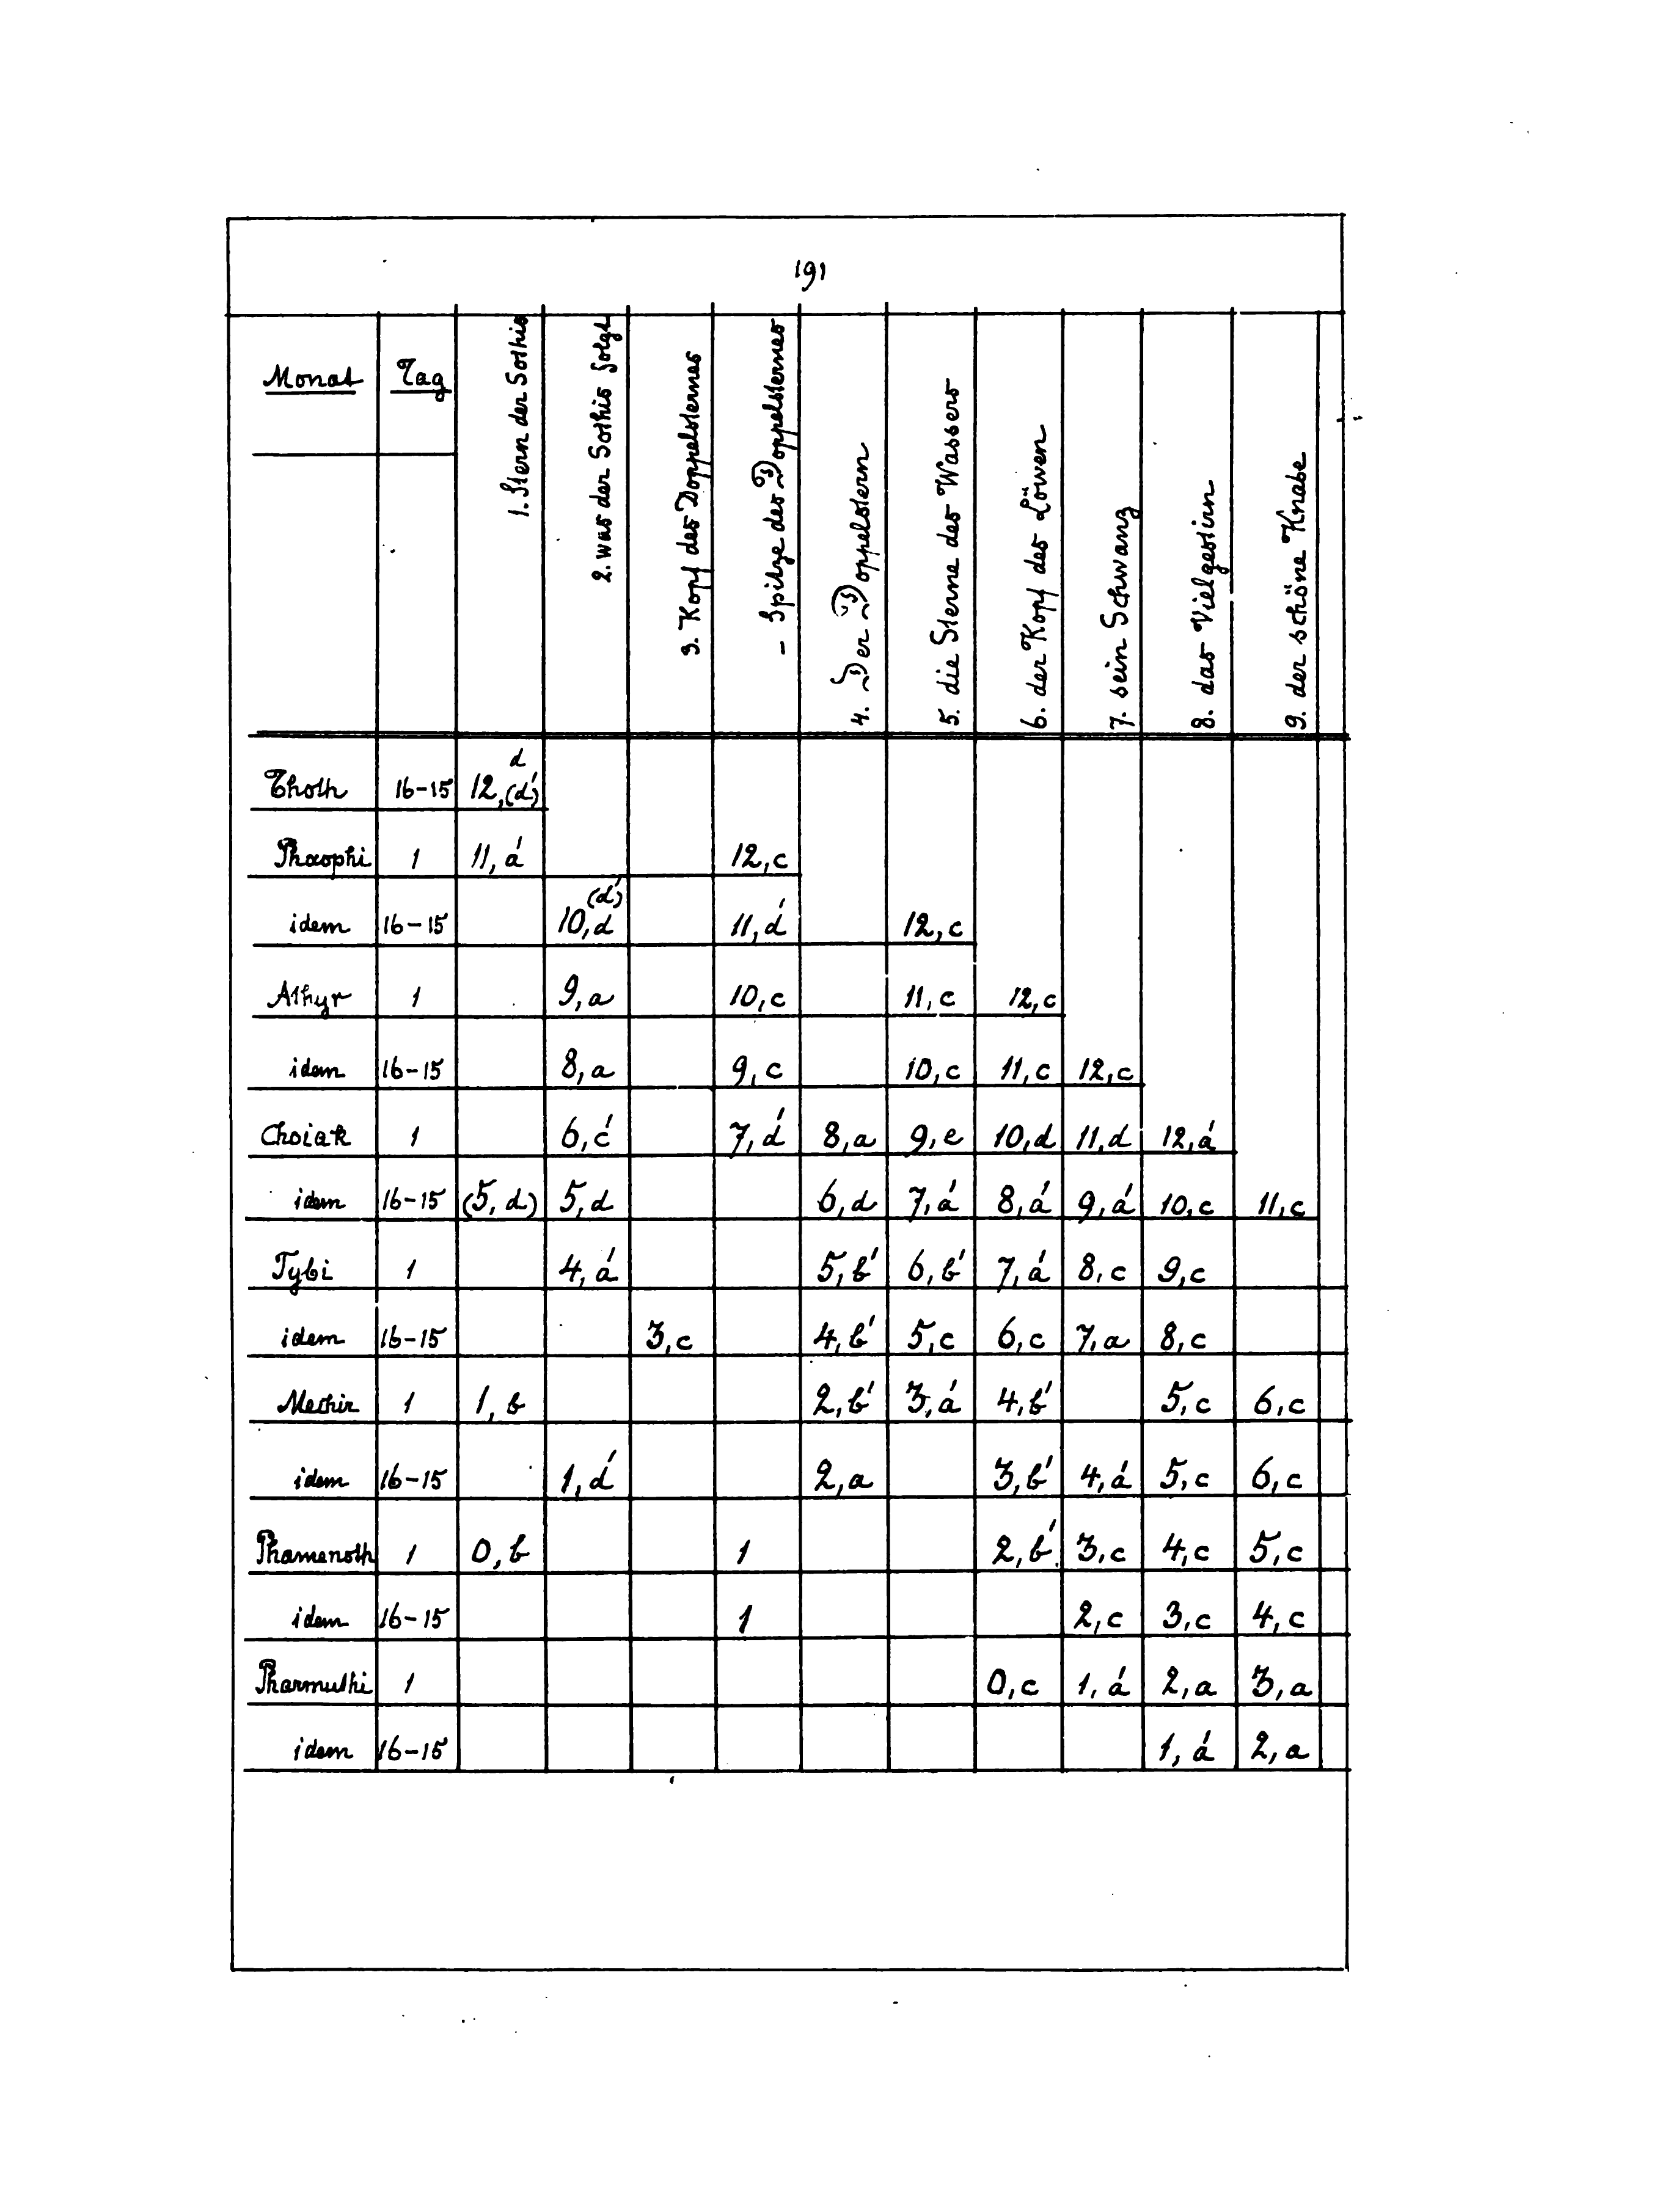 191
Monat Tag 1. Stern der Sothis 2. was der Sothis folgt 3. Kopf des Doppelsternes - Spitze des Doppelsternes 4. Der Doppelstern 5. die Sterne des Wassers 6. der Kopf des Löwen 7. sein Schwanz 8. das Vielgestirn 9. der schöne Knabe
d
Thoth 16-15 12,(d')
Phaophi 1 11, a' 12, c
(d')
idem 16-15 10, d 11, d' 12, c
Athyr 1 9, a 10, c 11, c 12, c
idem 16-15 8, a 9, c 10, c 11, c 12, c
Choiak 1 6, c' 7, d' 8, a 9, e 10, d 11, d 12, a'
idem 16-15 (5, d) 5, d 6, d 7, a' 8, a' 9, a' 10, c 11, c
Tybi 1 4, a' 5, b' 6, b' 7, a' 8, c 9, c
idem 16-15 3, c 4, b' 5, c 6, c 7, a 8, c
Mechir 1 1, b 2, b' 3, a' 4, b' 5, c 6, c
idem 16-15 1, d' 2, a 3, b' 4, a' 5, c 6, c
Phamenoth 1 0, b 1 2, b' 3, c 4, c 5, c
idem 16-15 1 2, c 3, c 4, c
Pharmuthi 1 0, c 1, a' 2, a 3, a
idem 16-15 1, a' 2, a